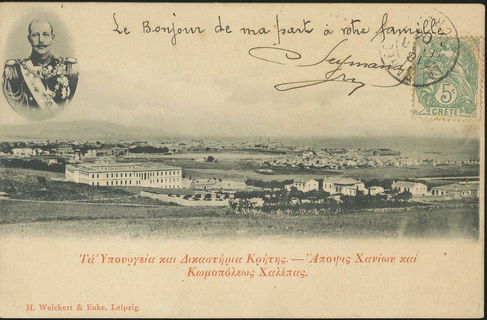 Le Bonjour de ma part à votre famille
5c
CRÈTE
Τὰ Ὑπουργεῖα καὶ Δικαστήρια Κρήτης. — Ἄποψις Χανίων καὶ
Κωμοπόλεως Χαλέπας.
H. Weickert & Enke, Leipzig.